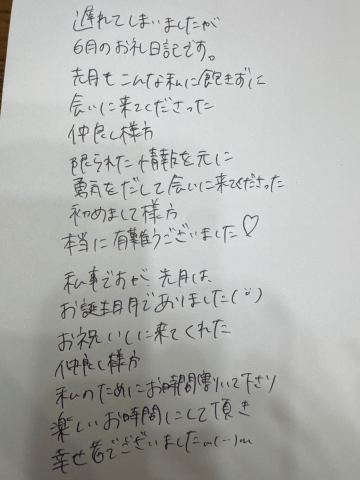 遅れてしまいましたが
6月のお礼日記です。
先月もこんな私に飽きずに
会いに来てくださった
仲良し様方
限られた情報を元に
勇気をだして会いに来てくださった
初めまして様方
本当に有難うございました♡
私事ですが、先月は、
お誕生月でありました(¨)
お祝いしに来てくれた
仲良し様方
私のためにお時間割いて下さり
楽しいお時間にして頂き
幸せ者でございましたm(--)m